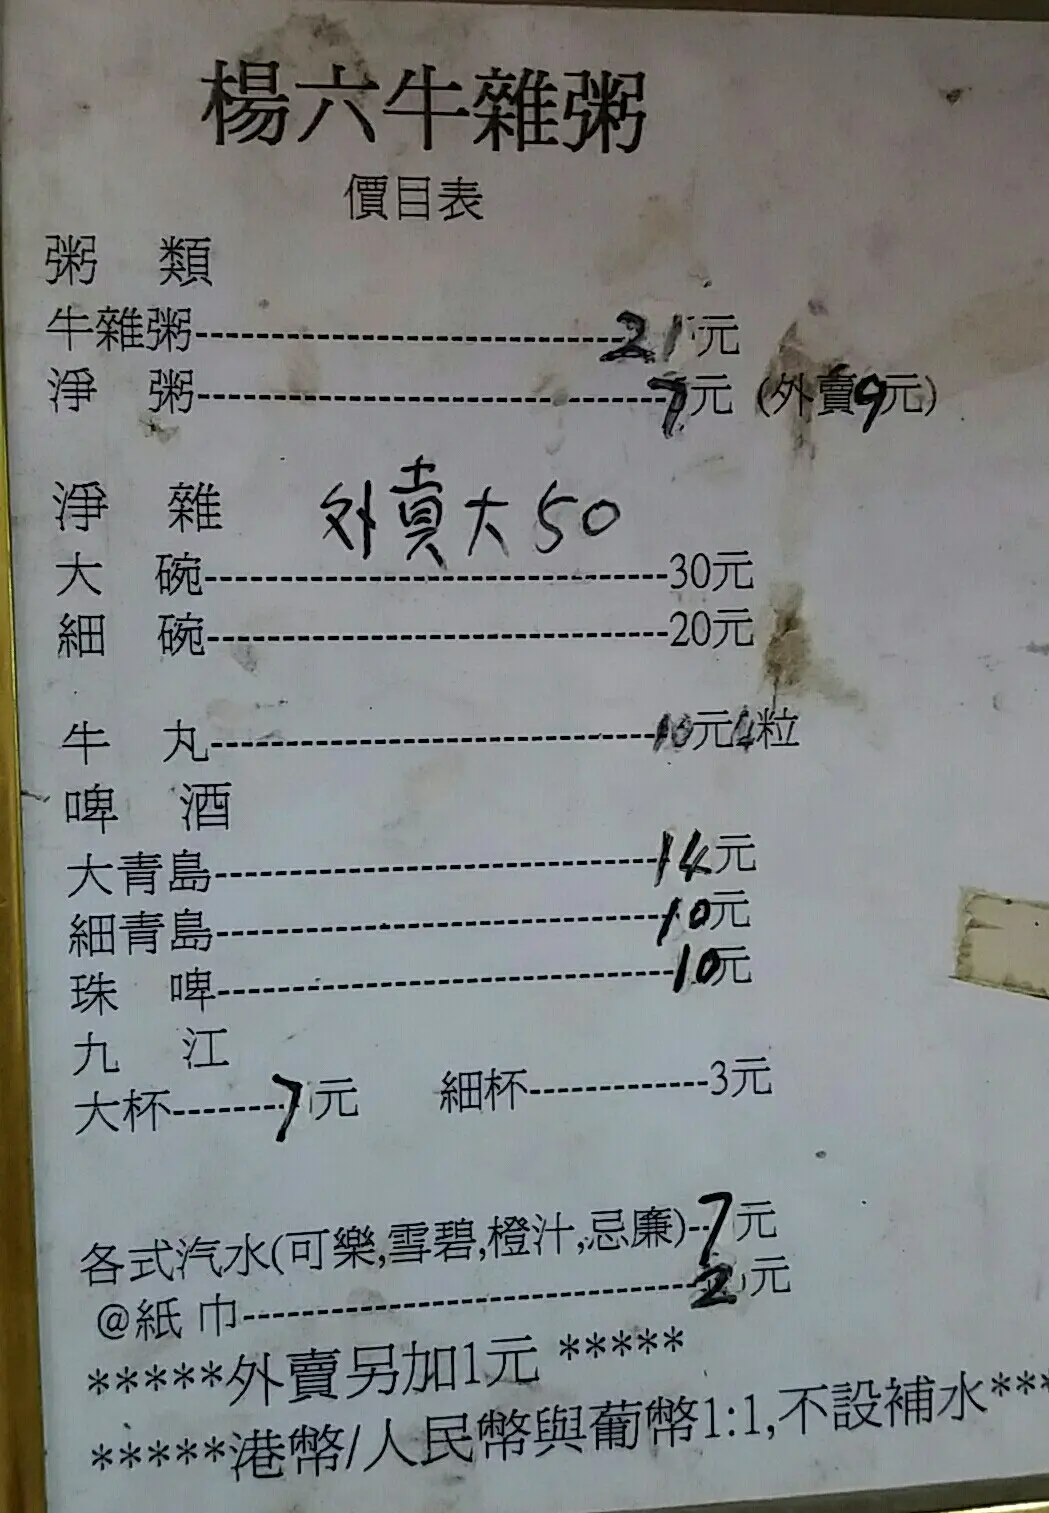 楊六牛雜粥
價目表
粥 類
牛雜粥-----------------------------21元
淨 粥-------------------------------7元 (外賣9元)
淨 雜 外賣大50
大 碗-------------------------------30元
細 碗-------------------------------20元
牛 丸------------------------------10元4粒
啤 酒
大青島------------------------------14元
細青島------------------------------10元
珠 啤-------------------------------10元
九 江
大杯--------7元 細杯------------3元
各式汽水(可樂,雪碧,橙汁,忌廉)--7元
@紙 巾------------------------------2元
*****外賣另加1元 *****
*****港幣/人民幣與葡幣1:1,不設補水***